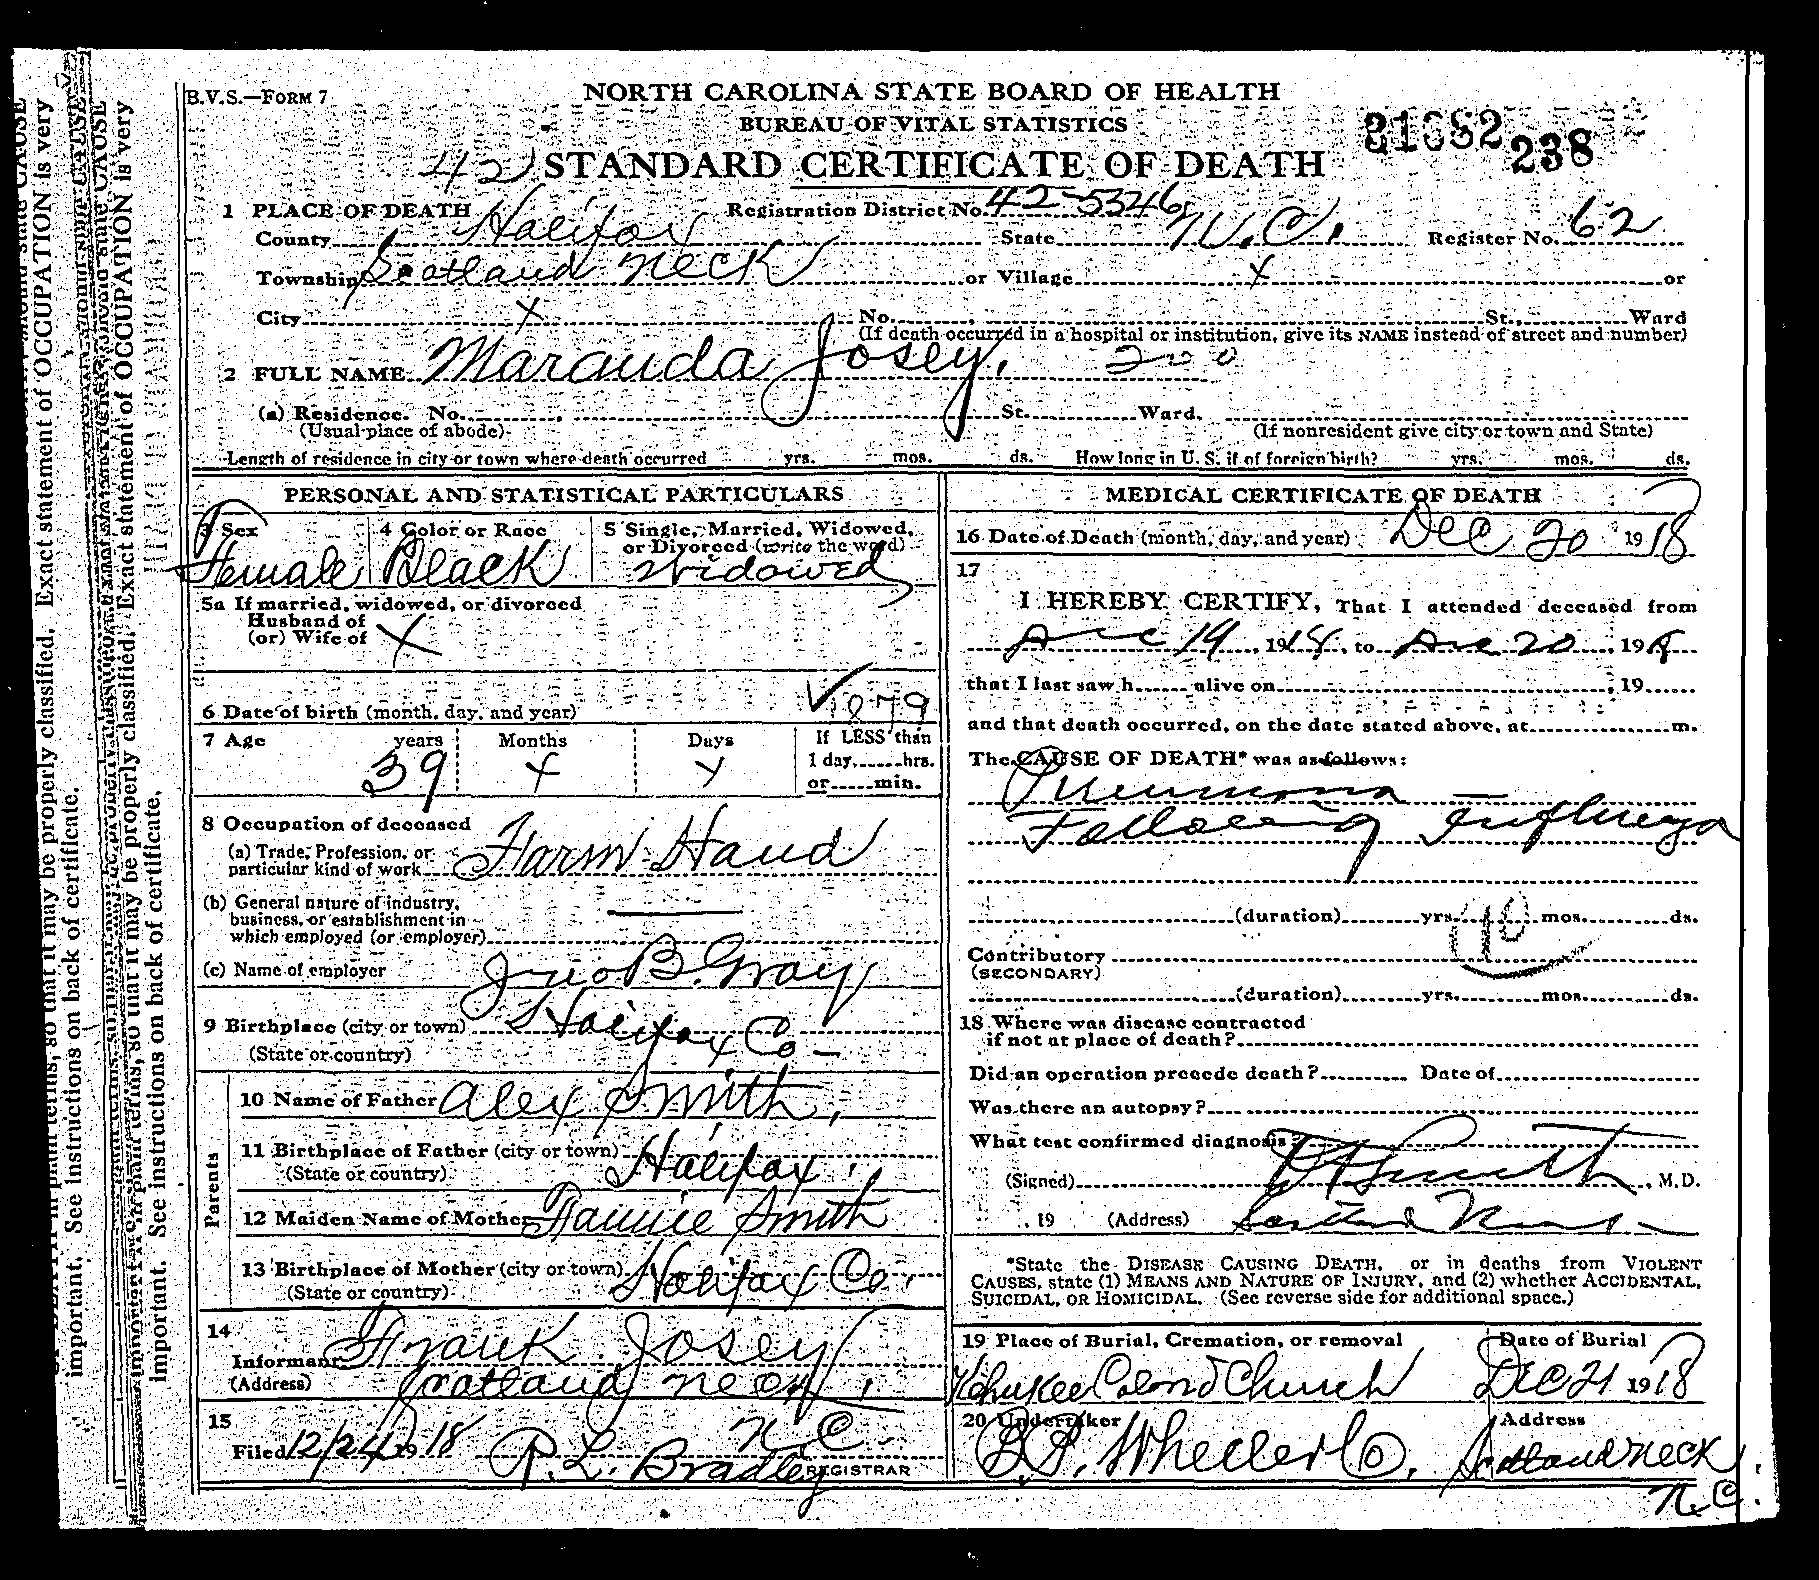 B.V.S.—FORM 7
NORTH CAROLINA STATE BOARD OF HEALTH
BUREAU OF VITAL STATISTICS
42 STANDARD CERTIFICATE OF DEATH
238
1 PLACE OF DEATH Registration District No. 42-5346
County Halifax State N.C. Register No. 62
Township Scotland Neck or Village x or
City x No. St., Ward
(If death occurred in a hospital or institution, give its NAME instead of street and number)
2 FULL NAME Maranda Josey.
(a) Residence. No. St. Ward.
(Usual place of abode) (If nonresident give city or town and State)
Length of residence in city or town where death occurred yrs. mos. ds. How long in U. S. if of foreign birth? yrs. mos. ds.
PERSONAL AND STATISTICAL PARTICULARS
3 Sex 4 Color or Race 5 Single, Married, Widowed,
or Divorced (write the word)
Female Black Widowed
5a If married, widowed, or divorced
Husband of
(or) Wife of x
6 Date of birth (month, day, and year) 1879
7 Age years Months Days If LESS than
39 x x 1 day, hrs.
or min.
8 Occupation of deceased
(a) Trade, Profession, or
particular kind of work Farm Hand
(b) General nature of industry,
business, or establishment in
which employed (or employer)
(c) Name of employer Jno B. Gray
9 Birthplace (city or town) Halifax Co
(State or country)
Parents
10 Name of Father Alex Smith,
11 Birthplace of Father (city or town) Halifax
(State or country)
12 Maiden Name of Mother Fannie Smith
13 Birthplace of Mother (city or town) Halifax Co.
(State or country)
14
Informant Frank Josey
(Address) Scotland Neck,
N.C.
15
Filed 12/24 1918 R. L. Bradley REGISTRAR
MEDICAL CERTIFICATE OF DEATH
16 Date of Death (month, day, and year) Dec 20 1918
17
I HEREBY CERTIFY, That I attended deceased from
Dec 19, 1918, to Dec 20, 1918
that I last saw h alive on , 19
and that death occurred, on the date stated above, at m.
The CAUSE OF DEATH* was as follows:
Pneumonia
Following Influenza
(duration) yrs. mos. ds.
Contributory
(SECONDARY)
(duration) yrs. mos. ds.
18 Where was disease contracted
if not at place of death?
Did an operation precede death? Date of
Was there an autopsy?
What test confirmed diagnosis?
(Signed) Smith, M.D.
, 19 (Address) Scotland Neck
*State the DISEASE CAUSING DEATH, or in deaths from VIOLENT
CAUSES, state (1) MEANS AND NATURE OF INJURY, and (2) whether ACCIDENTAL,
SUICIDAL, OR HOMICIDAL. (See reverse side for additional space.)
19 Place of Burial, Cremation, or removal Date of Burial
Kehukee Colored Church Dec 21 1918
20 Undertaker Address
Wheeler Co. Scotland Neck
N.C.
Exact statement of OCCUPATION is very
important. See instructions on back of certificate.
so that it may be properly classified.